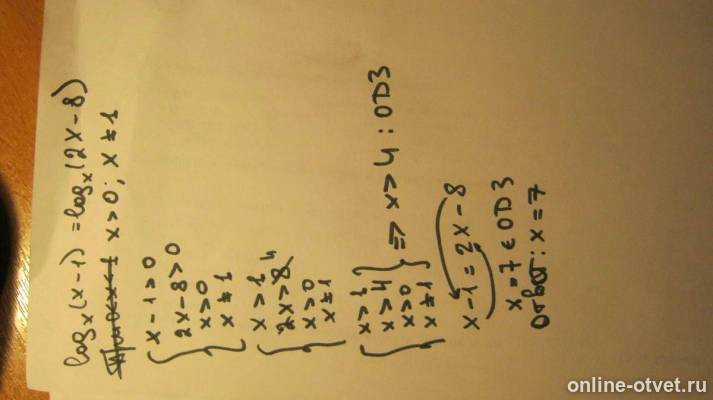 log_x(x-1) = log_x(2x-8)
x>0; x≠1
{ x-1>0
2x-8>0
x>0
x≠1
{ x>1
2x>8 4
x>0
x≠1
{ x>1
x>4
x>0
x≠1 } => x>4 : ОДЗ
x-1 = 2x-8
x=7 ∈ ОДЗ
Ответ: x=7
online-otvet.ru